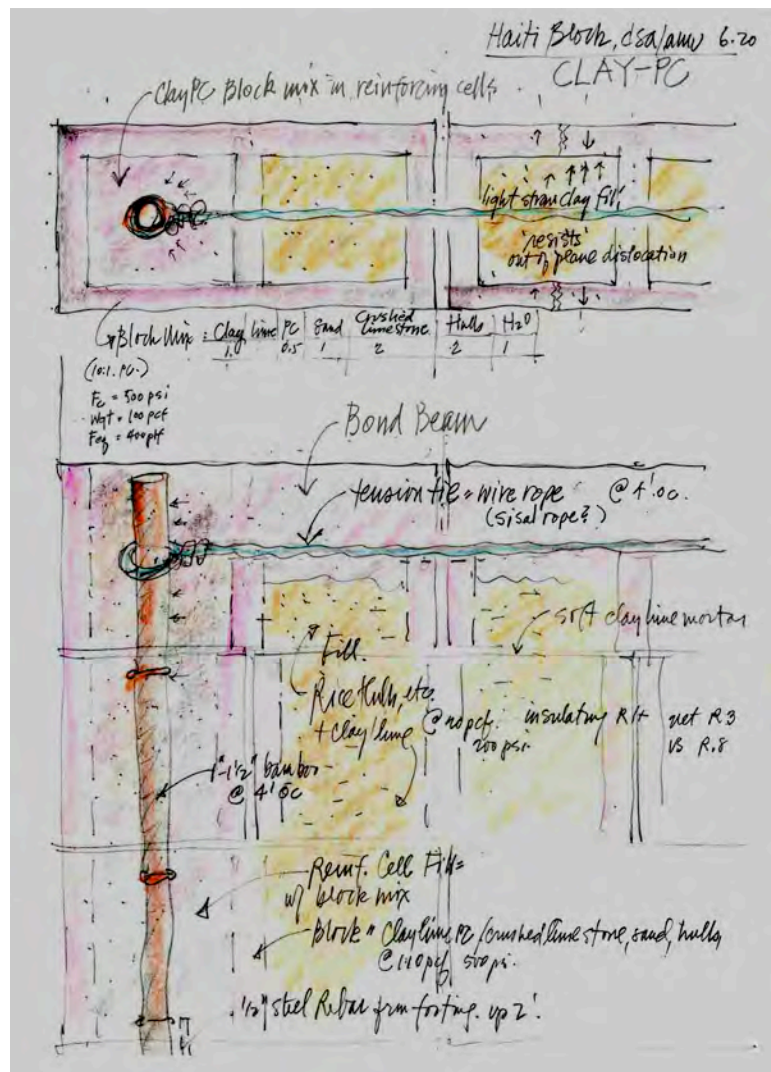 Haiti Block, dsa/amv 6.20
CLAY-PC
Clay PC Block mix in reinforcing cells
light straw clay fill
'resists'
out of plane dislocation
Block Mix : Clay lime PC Sand Crushed limestone Hulls H2O
1. 0.5 1 2 2 1
(10:1. P.C.)
Fc = 500 psi
Wgt = 100 pcf
= 400
Bond Beam
tension tie = wire rope @ 4'.oc.
(sisal rope?)
soft clay lime mortar
Fill.
Rice Hulls, etc.
+ clay/lime
200 psi.
insulating
net R.3
vs R.8
1"-1½" bamboo
@ 4' oc
Reinf. Cell Fill =
w/ block mix
Block = Clay lime PC/crushed limestone, sand, hulls
@ 110 pcf 500 psi.
1/2" steel Rebar from footing. up 2'.